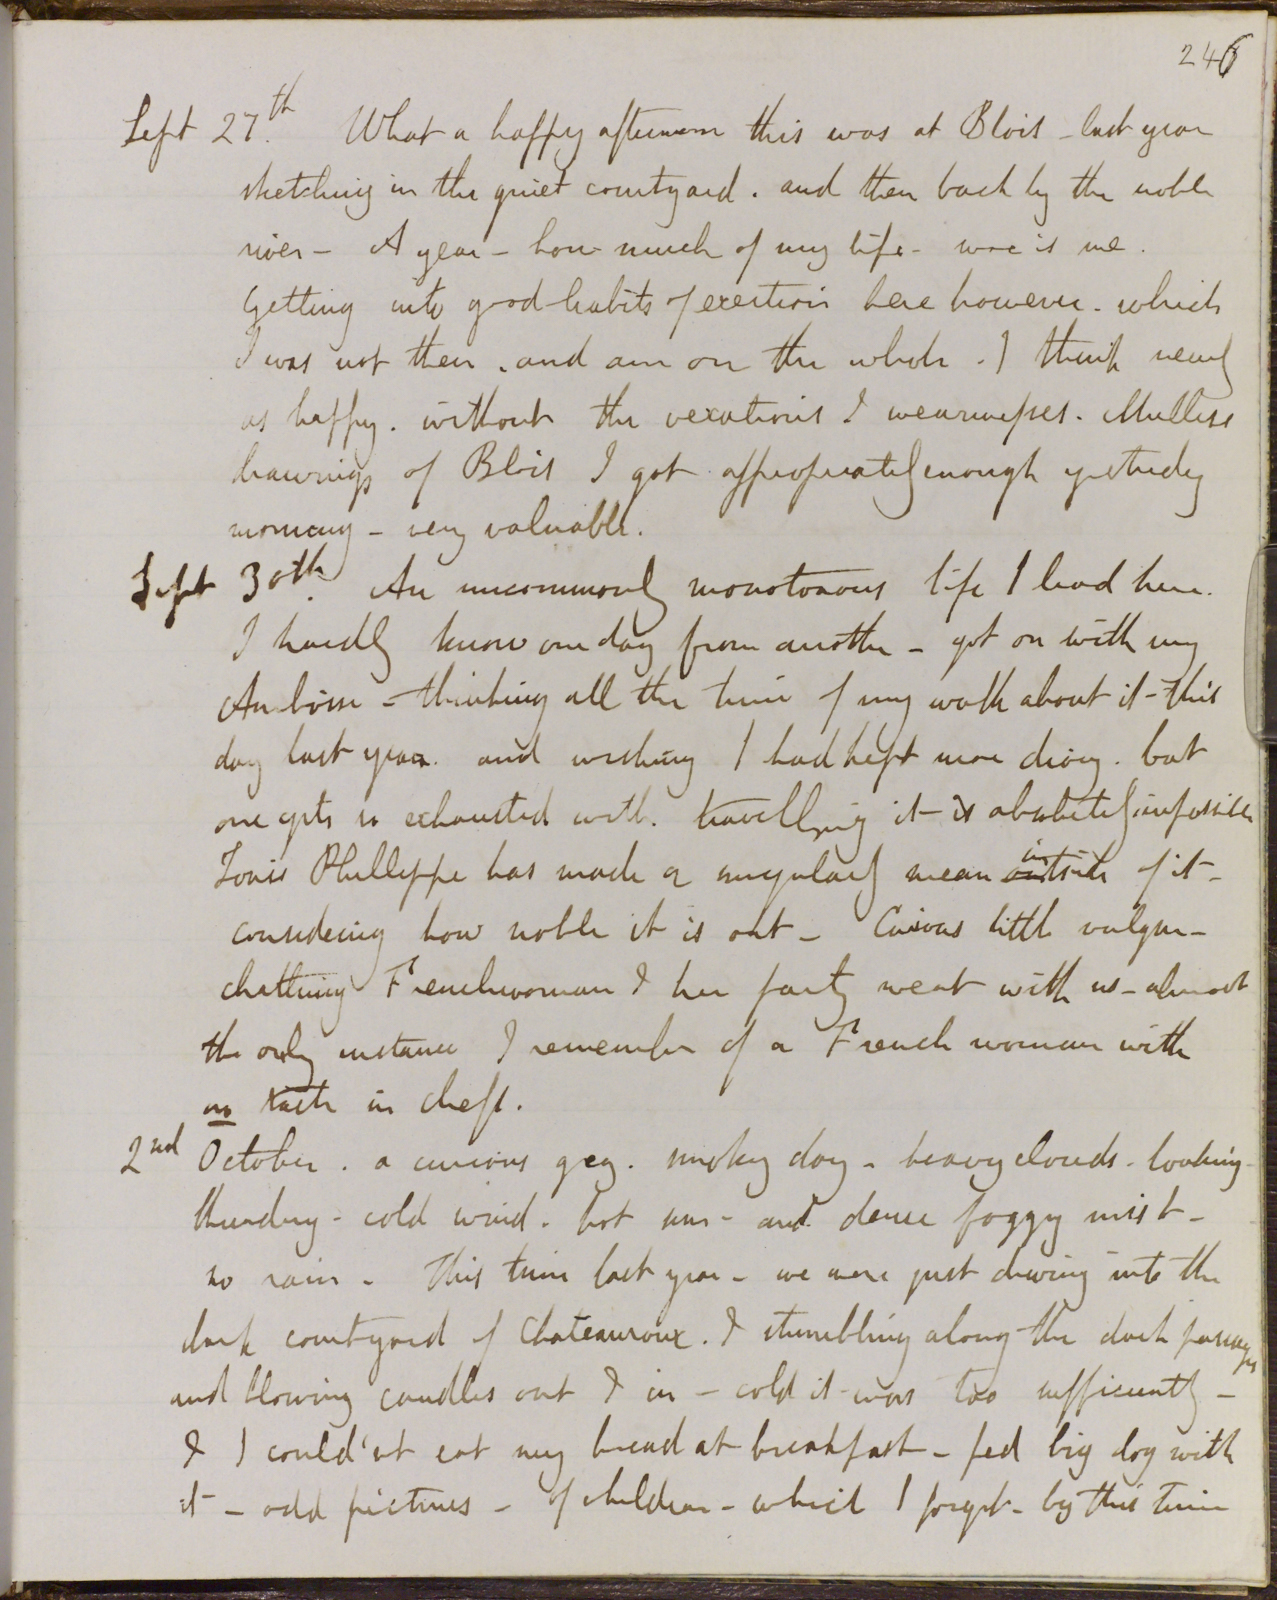 246
Sept 27th. What a happy afternoon this was at Blois - last year
sketching in the quiet courtyard. and then back by the noble
river - A year - how much of my life - woe is me.
Getting into good habits of exertion here however. which
I was not then. and am on the whole. I think nearly
as happy. without the vexations & wearinesses.
drawings of Blois I got appropriately enough yesterday
morning - very valuable.
Sept 30th. An uncommonly monotonous life I lead here.
I hardly know one day from another - got on with my
Amboise - thinking all the time of my walk about it - this
day last year. and wishing I had kept more diary. but
one gets so exhausted with travelling it is absolutely impossible
Louis Phillippe has made a singularly mean outside in of it -
considering how noble it is out - Curious little vulgar -
chattering Frenchwoman & her party went with us - almost
the only instance I remember of a French woman with
no tact in chefs.
2nd October. a curious grey. smoky day - heavy clouds - looking
thundery - cold wind. hot sun - and dense foggy mist -
no rain - This time last year - we were just driving into the
dark courtyard of Chateauroux. & stumbling along the dark passages
and blowing candles out & in - cold it was too sufficiently -
& I could'nt eat my bread at breakfast - fed big dog with
it - odd pictures - of children - which I forget - by this time